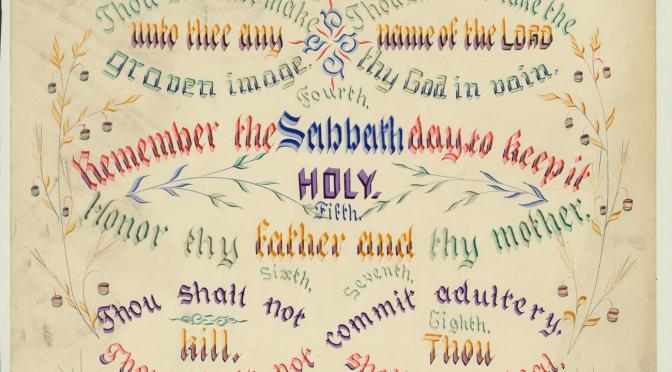 Thou make
unto thee any
graven image.
Thou take the
name of the LORD
thy God in vain.
Fourth,
Remember the Sabbath day, to keep it
HOLY.
Fifth,
Honor thy father and thy mother.
Sixth,
Thou shalt not
kill.
Seventh,
Thou shalt not commit adultery.
Eighth,
Thou
Thou not